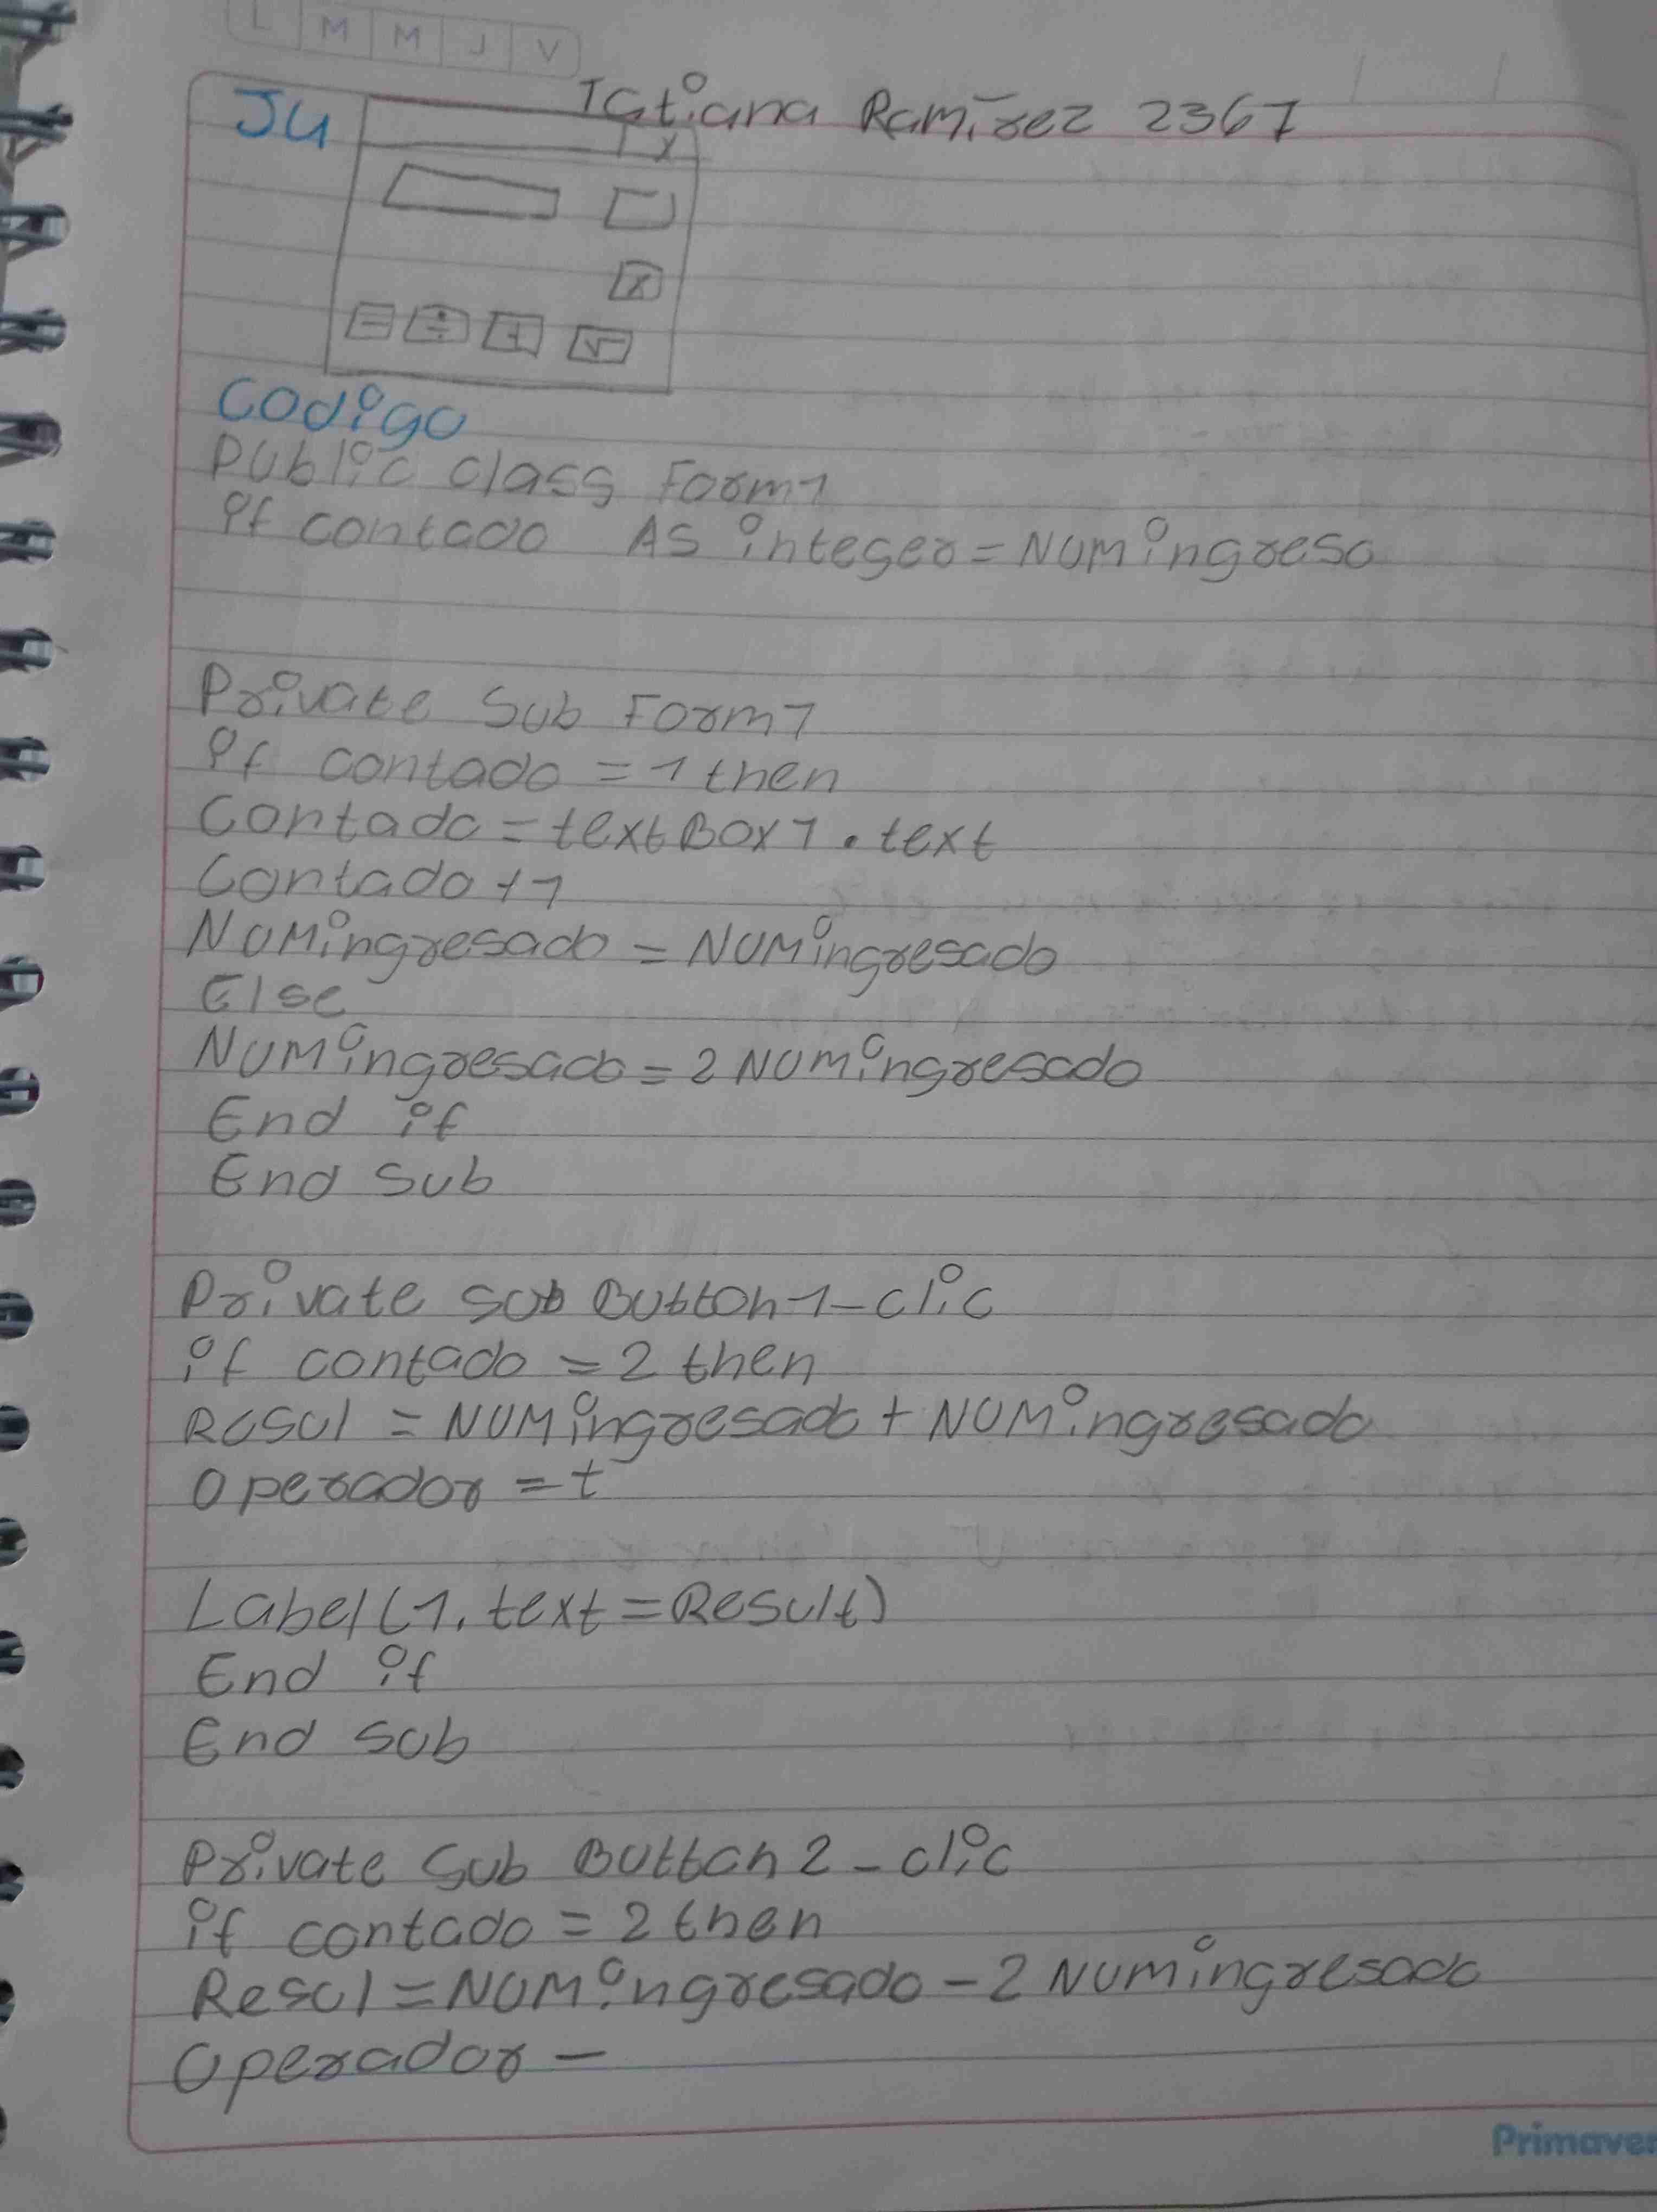 L M M J V
Tatiana Ramirez 2367
J4
X
X
= ÷ + √
Codigo
Public class Form1
if contado As integer = Numingreso
Private Sub Form1
if contado = 1 then
Contado = textBox1.text
Contado +1
Numingresado = Numingresado
Else
Numingresado = 2 Numingresado
End if
End Sub
Private Sub Button1-clic
if contado = 2 then
Resul = Numingresado + Numingresado
Operador = +
Label(1.text = Result)
End if
End sub
Private Sub Button2-clic
if contado = 2 then
Resul = Numingresado - 2 Numingresado
Operador -